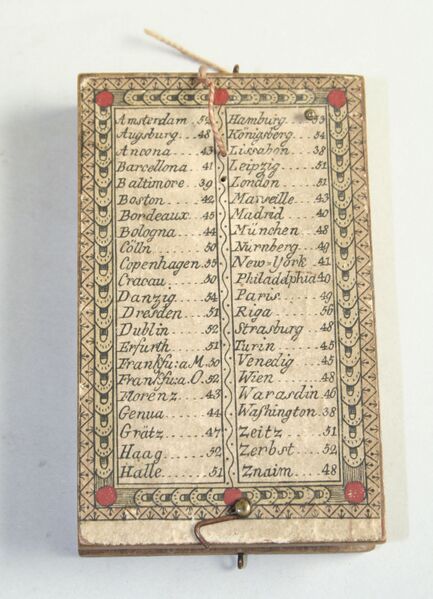 Amsterdam . . 52
Augsburg . . . 48
Ancona . . . . 43
Barcellona . . . 41
Baltimore . . 39
Boston . . . . . 42
Bordeaux . . . 45
Bologna . . . . 44
Cölln . . . . . . 50
Copenhagen . 55
Cracau . . . . . 50
Danzig . . . . . 54
Dresden . . . . 51
Dublin . . . . . 52
Erfurth . . . . 51
Frankfu: a M. 50
Frankfu: a. O. 52
Florenz . . . . 43
Genua . . . . . 44
Grätz . . . . . 47
Haag . . . . . . 52
Halle . . . . . . 51
Hamburg . . . 53
Königsberg . . 54
Lissabon . . . 38
Leipzig . . . . . 51
London . . . . . 51
Marveille . . . 43
Madrid . . . . . 40
München . . . 48
Nurnberg . . . 49
New-York . . . 41
Philaddphia 40
Paris . . . . . . 49
Riga . . . . . . 56
Strasburg . . . 48
Turin . . . . . 45
Venedig . . . . 45
Wien . . . . . . 48
Warasdin . 46
Washington . 38
Zeitz . . . . . . 51
Zerbst . . . . . 52
Znaim . . . . . 48